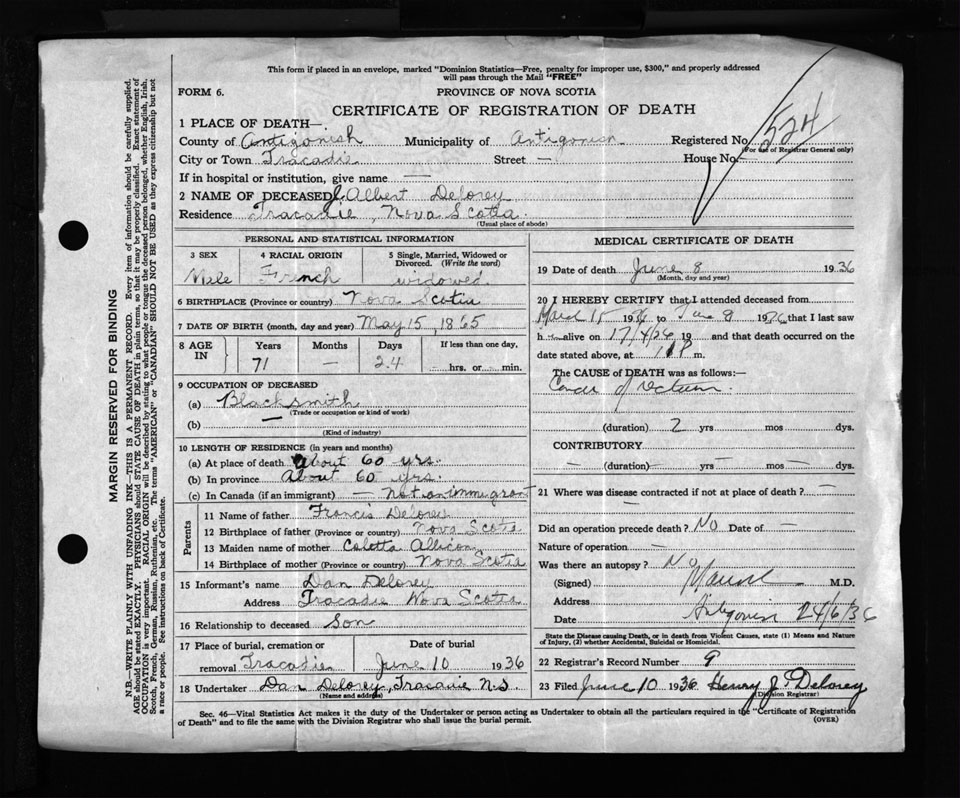 This form if placed in an envelope, marked "Dominion Statistics—Free, penalty for improper use, $300," and properly addressed
will pass through the Mail "FREE"
FORM 6.
PROVINCE OF NOVA SCOTIA
CERTIFICATE OF REGISTRATION OF DEATH
1 PLACE OF DEATH—
County of Antigonish Municipality of Antigonish Registered No. 524
(For use of Registrar General only)
City or Town Tracadie Street — House No. —
If in hospital or institution, give name —
2 NAME OF DECEASED Albert Delorey
Residence Tracadie, Nova Scotia.
(Usual place of abode)
PERSONAL AND STATISTICAL INFORMATION
3 SEX 4 RACIAL ORIGIN 5 Single, Married, Widowed or Divorced. (Write the word)
Male French widowed
6 BIRTHPLACE (Province or country) Nova Scotia
7 DATE OF BIRTH (month, day and year) May 15, 1865
8 AGE IN Years Months Days If less than one day,
71 — 24 hrs. or min.
9 OCCUPATION OF DECEASED
(a) Blacksmith
(Trade or occupation or kind of work)
(b) —
(Kind of industry)
10 LENGTH OF RESIDENCE (in years and months)
(a) At place of death About 60 yrs.
(b) In province About 60 yrs.
(c) In Canada (if an immigrant) — Not an immigrant
Parents
11 Name of father Francis Delorey
12 Birthplace of father (Province or country) Nova Scotia
13 Maiden name of mother Coletta
14 Birthplace of mother (Province or country) Nova Scotia
15 Informant's name Dan Delorey
Address Tracadie Nova Scotia
16 Relationship to deceased Son
17 Place of burial, cremation or removal Tracadie Date of burial June 10 1936
18 Undertaker Dan Delorey, Tracadie N.S.
(Name and address)
MEDICAL CERTIFICATE OF DEATH
19 Date of death June 8 1936
(Month, day and year)
20 I HEREBY CERTIFY that I attended deceased from
March 15 1936 to June 8 1936 that I last saw
h alive on 17/4/36 19 and that death occurred on the
date stated above, at m.
The CAUSE of DEATH was as follows:—
Cancer of rectum.
(duration) 2 yrs mos dys.
CONTRIBUTORY
— (duration) — yrs — mos — dys.
21 Where was disease contracted if not at place of death? —
Did an operation precede death? No Date of —
Nature of operation —
Was there an autopsy? No
(Signed) M.D.
Address Antigonish
Date 24/6/36
State the Disease causing Death, or in death from Violent Causes, state (1) Means and Nature
of Injury, (2) whether Accidental, Suicidal or Homicidal.
22 Registrar's Record Number 9
23 Filed June 10 1936 Henry J. Delorey
(Division Registrar)
Sec. 46—Vital Statistics Act makes it the duty of the Undertaker or person acting as Undertaker to obtain all the particulars required in the "Certificate of Registration
of Death" and to file the same with the Division Registrar who shall issue the burial permit.
(OVER)
MARGIN RESERVED FOR BINDING
N.B.—WRITE PLAINLY WITH UNFADING INK—THIS IS A PERMANENT RECORD. Every item of information should be carefully supplied.
AGE should be stated EXACTLY. PHYSICIANS should STATE CAUSE OF DEATH in plain terms, so that it may be properly classified. Exact statement of
OCCUPATION is very important. RACIAL ORIGIN will be described by stating to what people or tongue the deceased person belonged, whether English, Irish,
Scotch, French, German, Russian, Ruthenian, etc. The terms "AMERICAN" or "CANADIAN" SHOULD NOT BE USED as they express citizenship but not
a race or people. See instructions on back of Certificate.